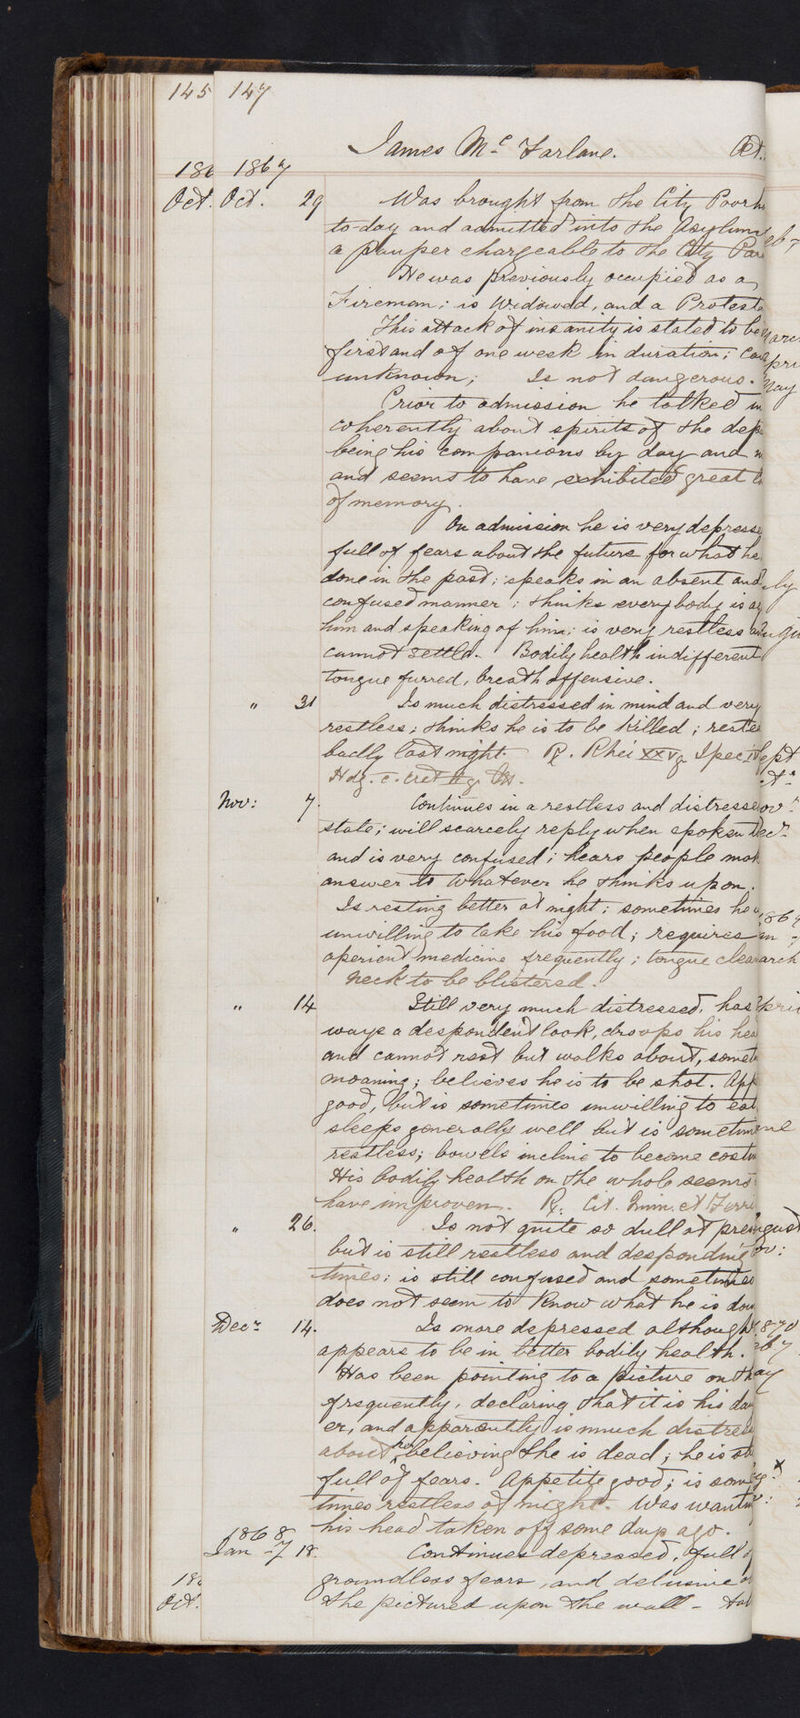 145 147
James Mc Farlane. Aet.
186 1867
Oct. Oct. 29 Was brought from the City Poorh
to-day and admitted into the Asylum
a pauper chargeable to the City Par
He was previously occupied as a
Fireman; is Widowed, and a Protest
This attack of insanity is stated to be
first and of one week in duration; Ca
unknown; Is not dangerous.
Prior to admission he talked in
coherently about spirits of the dep
being his companions by day and n
and seems to have exhibited great l
of memory.
On admission he is very depresse
full of fears about the future for what he
done in the past; speaks in an absent and
confused manner; thinks everybody is ag
him and speaking of him; is very restless an
cannot settle. Bodily health indifferent
tongue furred, breath offensive.
" 31 Is much distressed in mind and very
restless; thinks he is to be killed; rested
badly last night. R. Rhei xxv g Ipec
Hdg. c. Cret
Nov: 7. Continues in a restless and distresse
state; will scarcely reply when spoken t
and is very confused; hears people mak
answer to whatever he thinks upon.
Is resting better at night; sometimes he
unwilling to take his food; requires
aperient medicine frequently; tongue clean
Neck to be blistered.
" 14 Still very much distressed, has
ways a despondent look, droops his hea
and cannot rest but walks about, somet
moaning; believes he is to be shot. App
good, but is sometimes unwilling to eat
sleeps generally well but is sometime
restless; bowels incline to become costi
His bodily health on the whole seems
have improven. R. Cit. Quin. et Ferri
" 26. Is not quite so dull at pre
but is still restless and desponding
times; is still confused and sometimes
does not seem to know what he is doin
Decr 14. Is more depressed although
appears to be in better bodily health.
Has been pointing to a picture on th
frequently, declaring that it is his dau
er, and apparently is much distress
about her believing she is dead; he is sti
full of fears. Appetite good; is some
times restless at night. Was wantin
his head taken off some days ago.
1868
Jany 18. Continues depressed, full of
groundless fears, and delusive
the pictured upon the wall -
186
Oct.